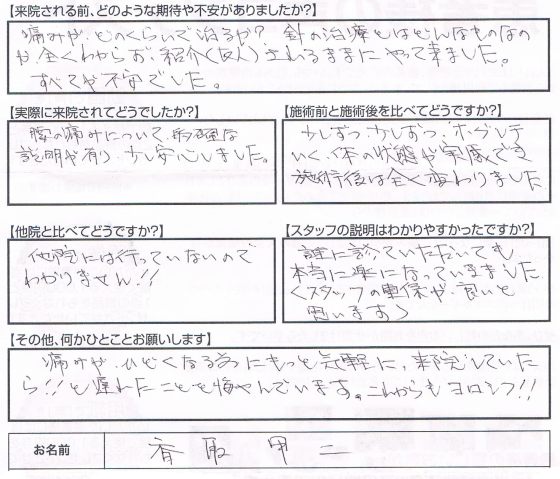 【来院される前、どのような期待や不安がありましたか?】
痛みが、どのくらいで治るか? 針の治療とはどんなものなの
か 全くわからず、紹介(友人)されるままにやって来ました。
すべてが不安でした。
【実際に来院されてどうでしたか?】
腰の痛みについて、的確な
説明が有り、少し安心しました。
【施術前と施術後を比べてどうですか?】
少しずつ、少しずつ、ホグレテ
いく、体の状態が実感でき
施術後は全く変わりました
【他院と比べてどうですか?】
他院には行っていないので
わかりません!!
【スタッフの説明はわかりやすかったですか?】
誰に診ていただいても
本当に楽になっていきました
<スタッフの連係が良いと
思います>
【その他、何かひとことお願いします】
痛みが、ひどくなる前にもっと気軽に、来院していた
ら!!と遅れたことを悔やんでいます。これからもヨロシク!!
お名前 香取 甲二